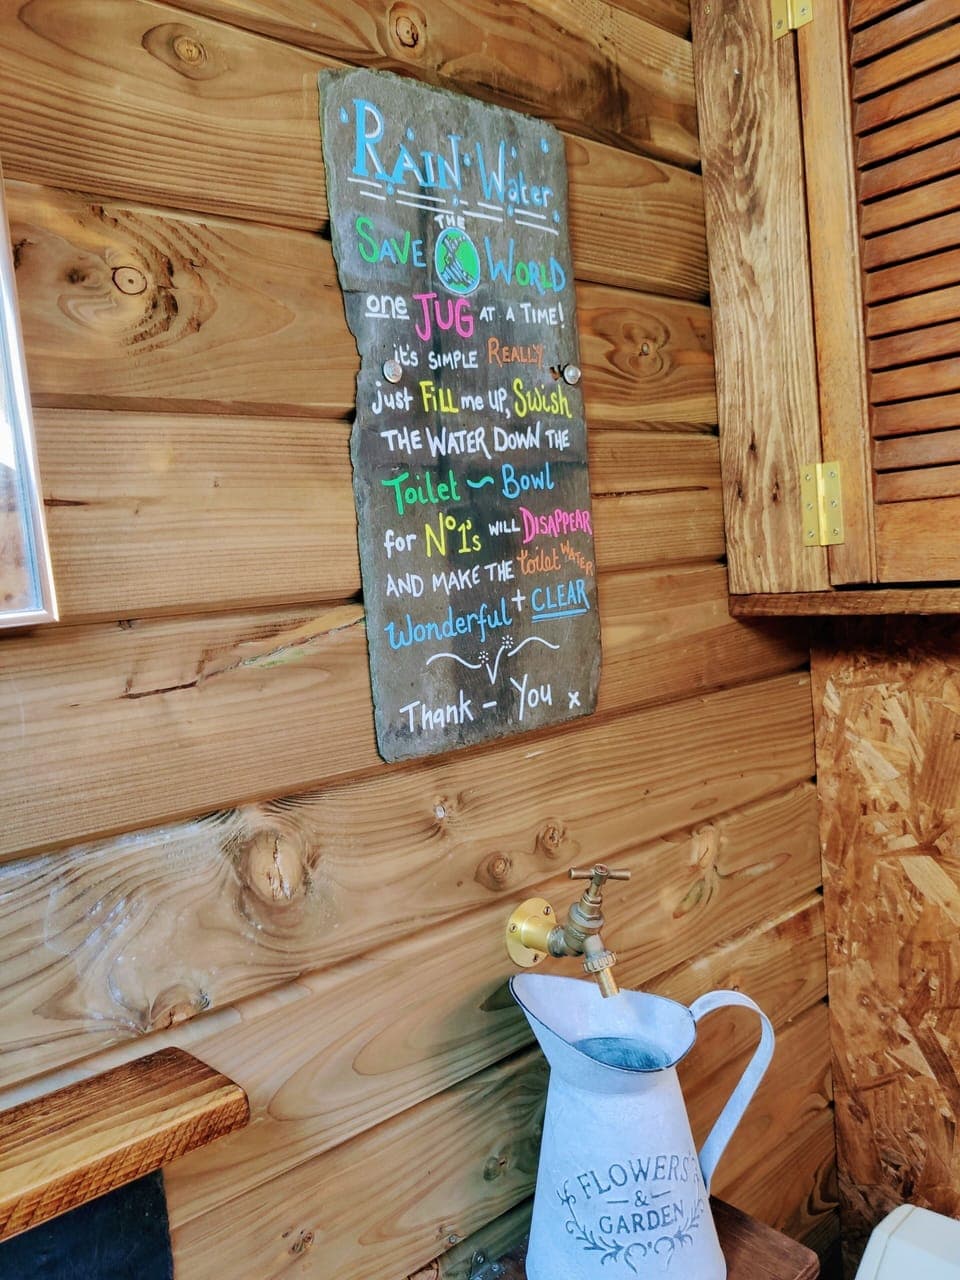 RAIN Water
SAVE THE WORLD
one JUG AT A TIME!
it's SIMPLE REALLY
just Fill me UP, Swish
THE WATER DOWN THE
Toilet ~ Bowl
for Nº1's WILL DISAPPEAR
AND MAKE THE toilet WATER
Wonderful + CLEAR
Thank - You x
FLOWERS
&
GARDEN